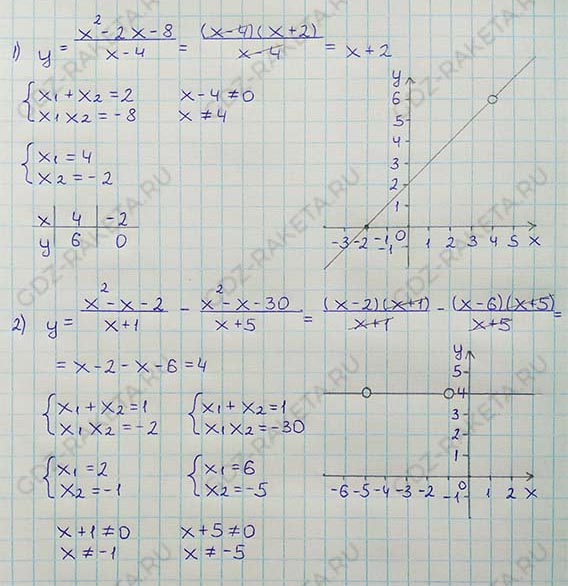 1) y = (x² - 2x - 8)/(x - 4) = ((x-4)(x+2))/(x-4) = x+2
{x₁ + x₂ = 2
x₁ x₂ = -8
x - 4 ≠ 0
x ≠ 4
{x₁ = 4
x₂ = -2
x | 4 | -2
y | 6 | 0
y
6
5
4
3
2
1
-3 -2 -1 0 1 2 3 4 5 x
-1
2) y = (x² - x - 2)/(x+1) - (x² - x - 30)/(x+5) = ((x-2)(x+1))/(x+1) - ((x-6)(x+5))/(x+5) =
= x - 2 - x - 6 = 4
{x₁ + x₂ = 1
x₁ x₂ = -2
{x₁ + x₂ = 1
x₁ x₂ = -30
{x₁ = 2
x₂ = -1
{x₁ = 6
x₂ = -5
x + 1 ≠ 0
x ≠ -1
x + 5 ≠ 0
x ≠ -5
y
5
4
3
2
1
-6 -5 -4 -3 -2 0 1 2 x
-1
GDZ-RAKETA.RU